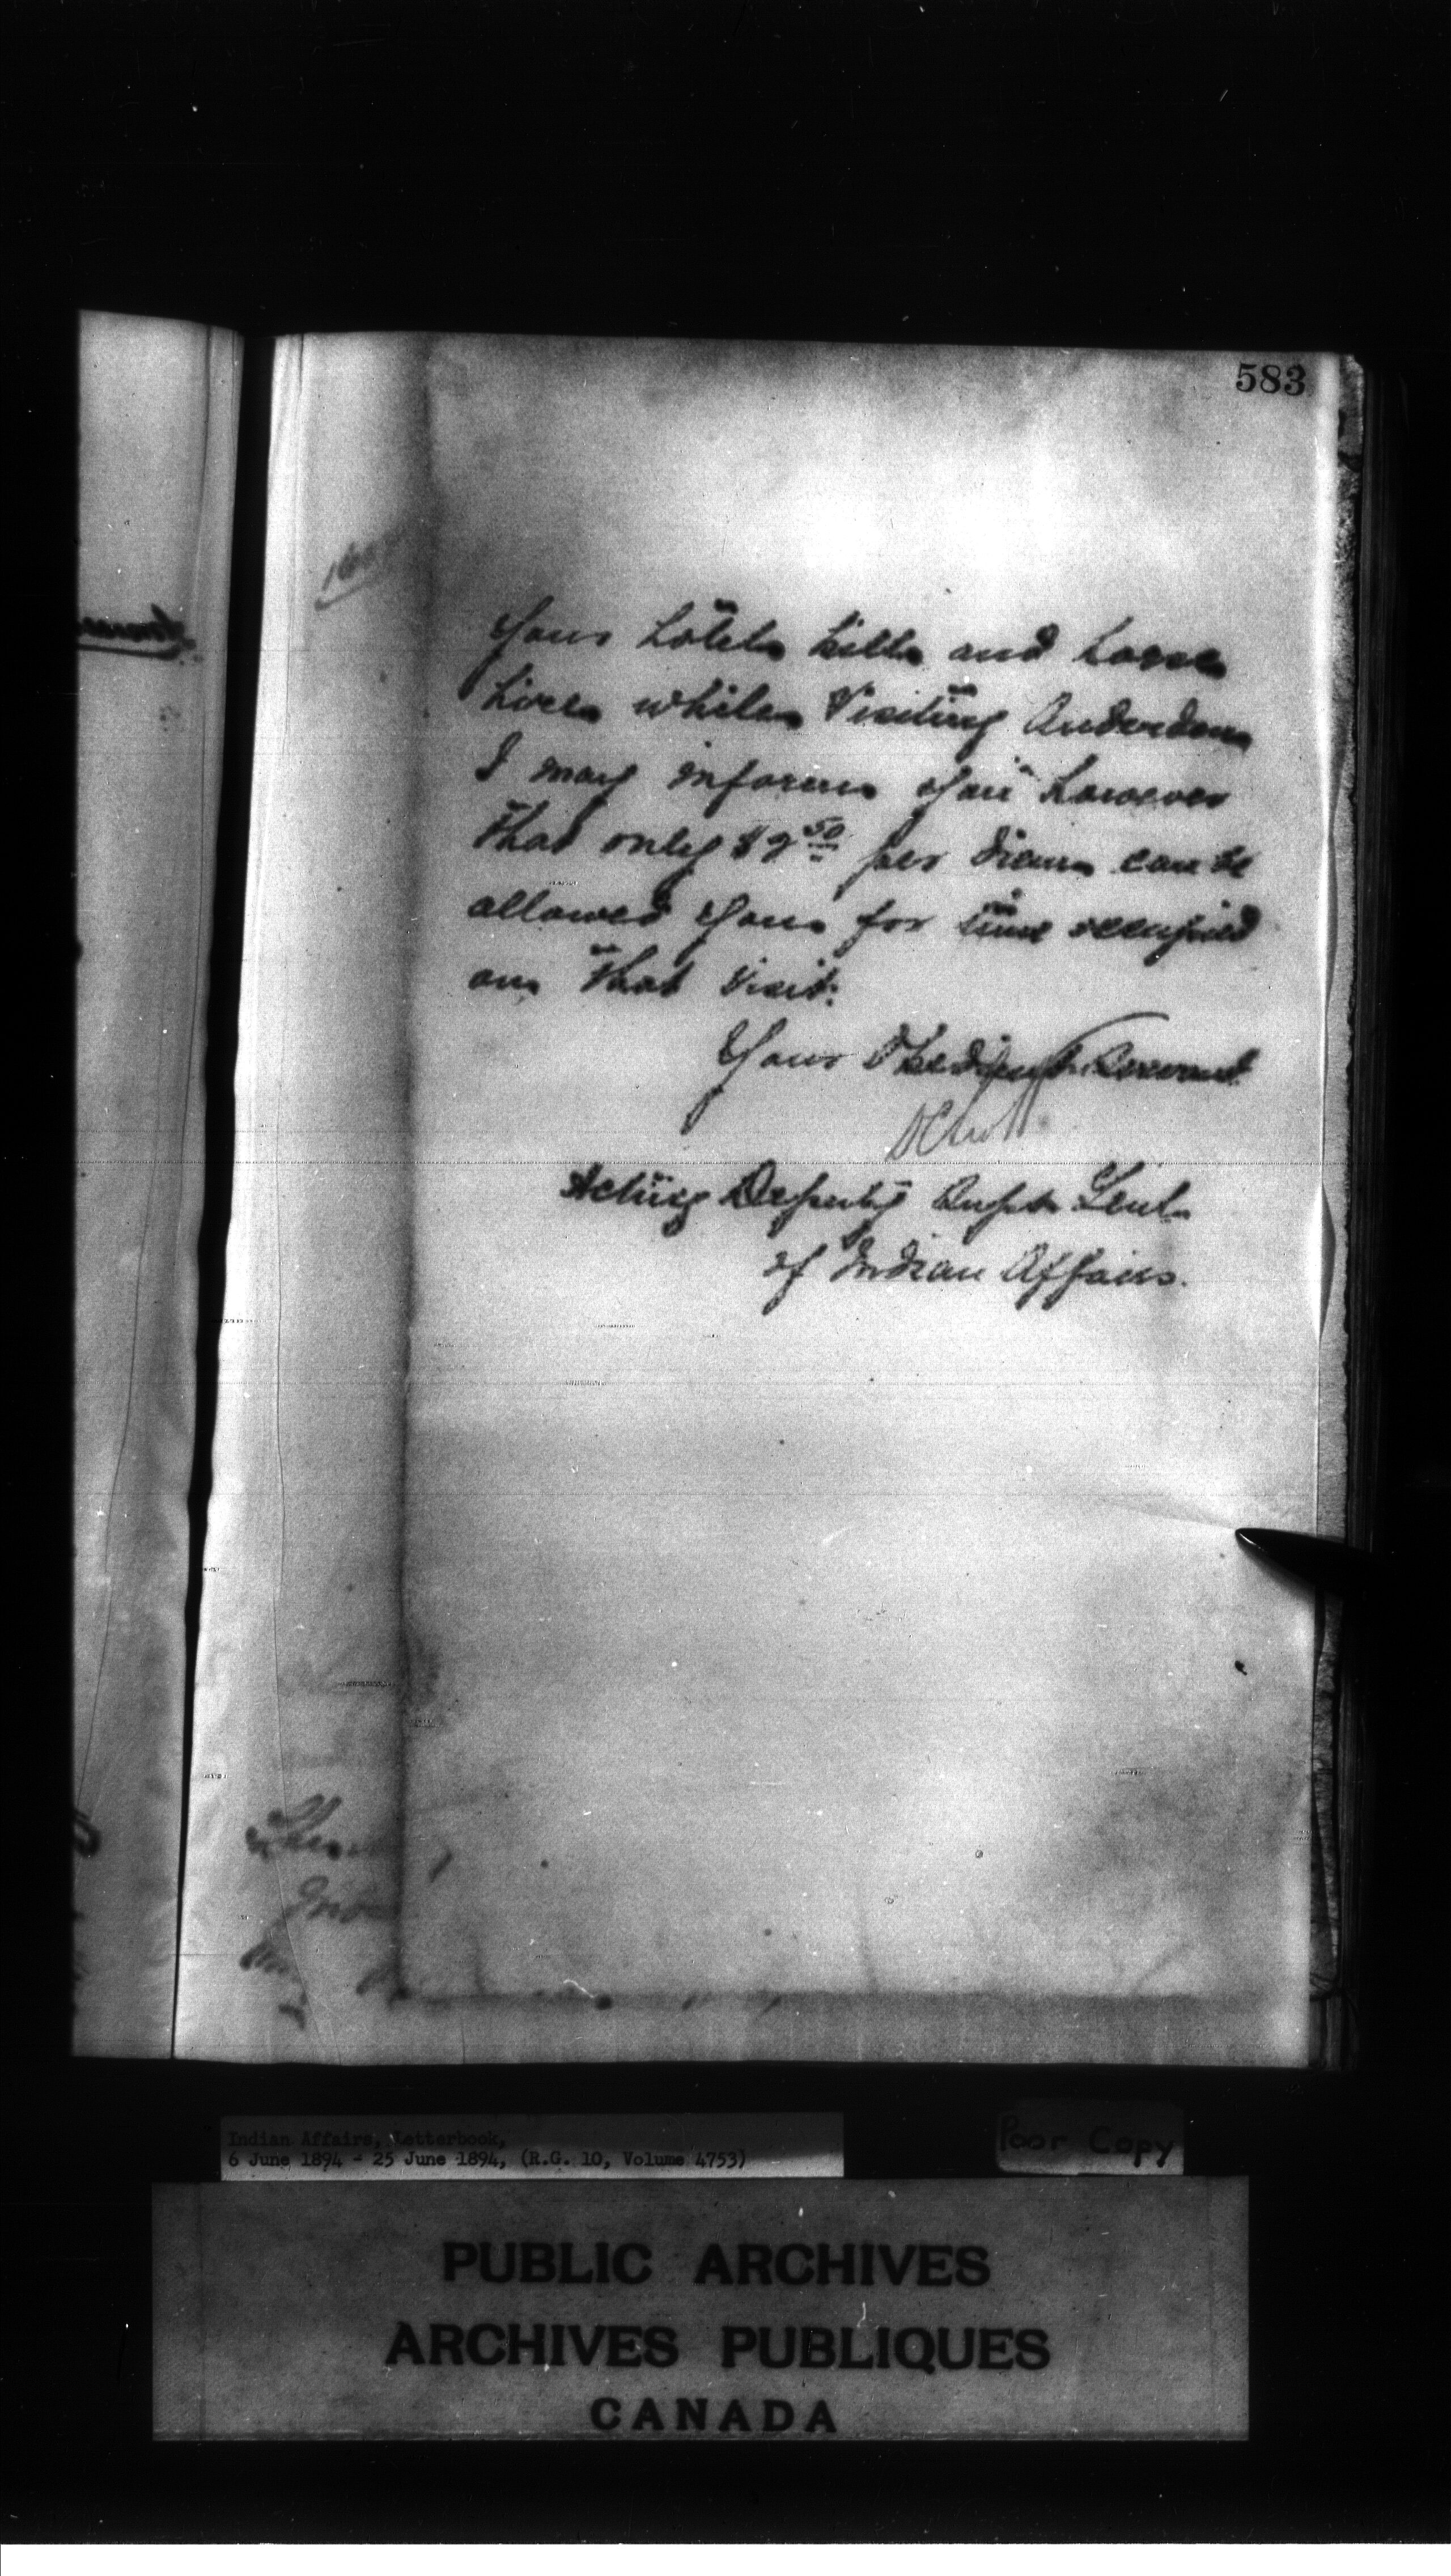 583
Your hotel bills and horse
hire while visiting Anderdon
I may inform you however
that only $2.50 per diem can be
allowed you for time occupied
on that visit.
Your Obedient Servant
Acting Deputy Supt. Genl.
of Indian Affairs.
Indian Affairs, Letterbook,
6 June 1894 - 25 June 1894, (R.G. 10, Volume 4753)
Poor Copy
PUBLIC ARCHIVES
ARCHIVES PUBLIQUES
CANADA